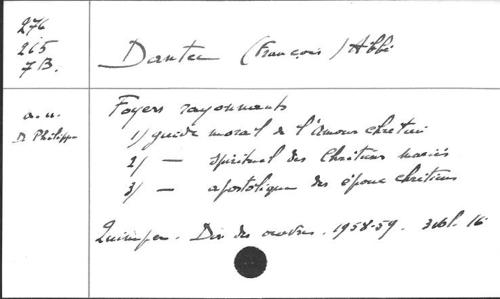 276
265
7B.
Dantec (François) Abbé
a.n.
Dr Philippe
Foyers rayonnants
1) guide moral de l'amour chrétien
2) — spirituel des Chrétiens mariés
3) — apostolique des époux chrétiens
Quimper. Dir. des œuvres. 1958-59. 3 vol. 16